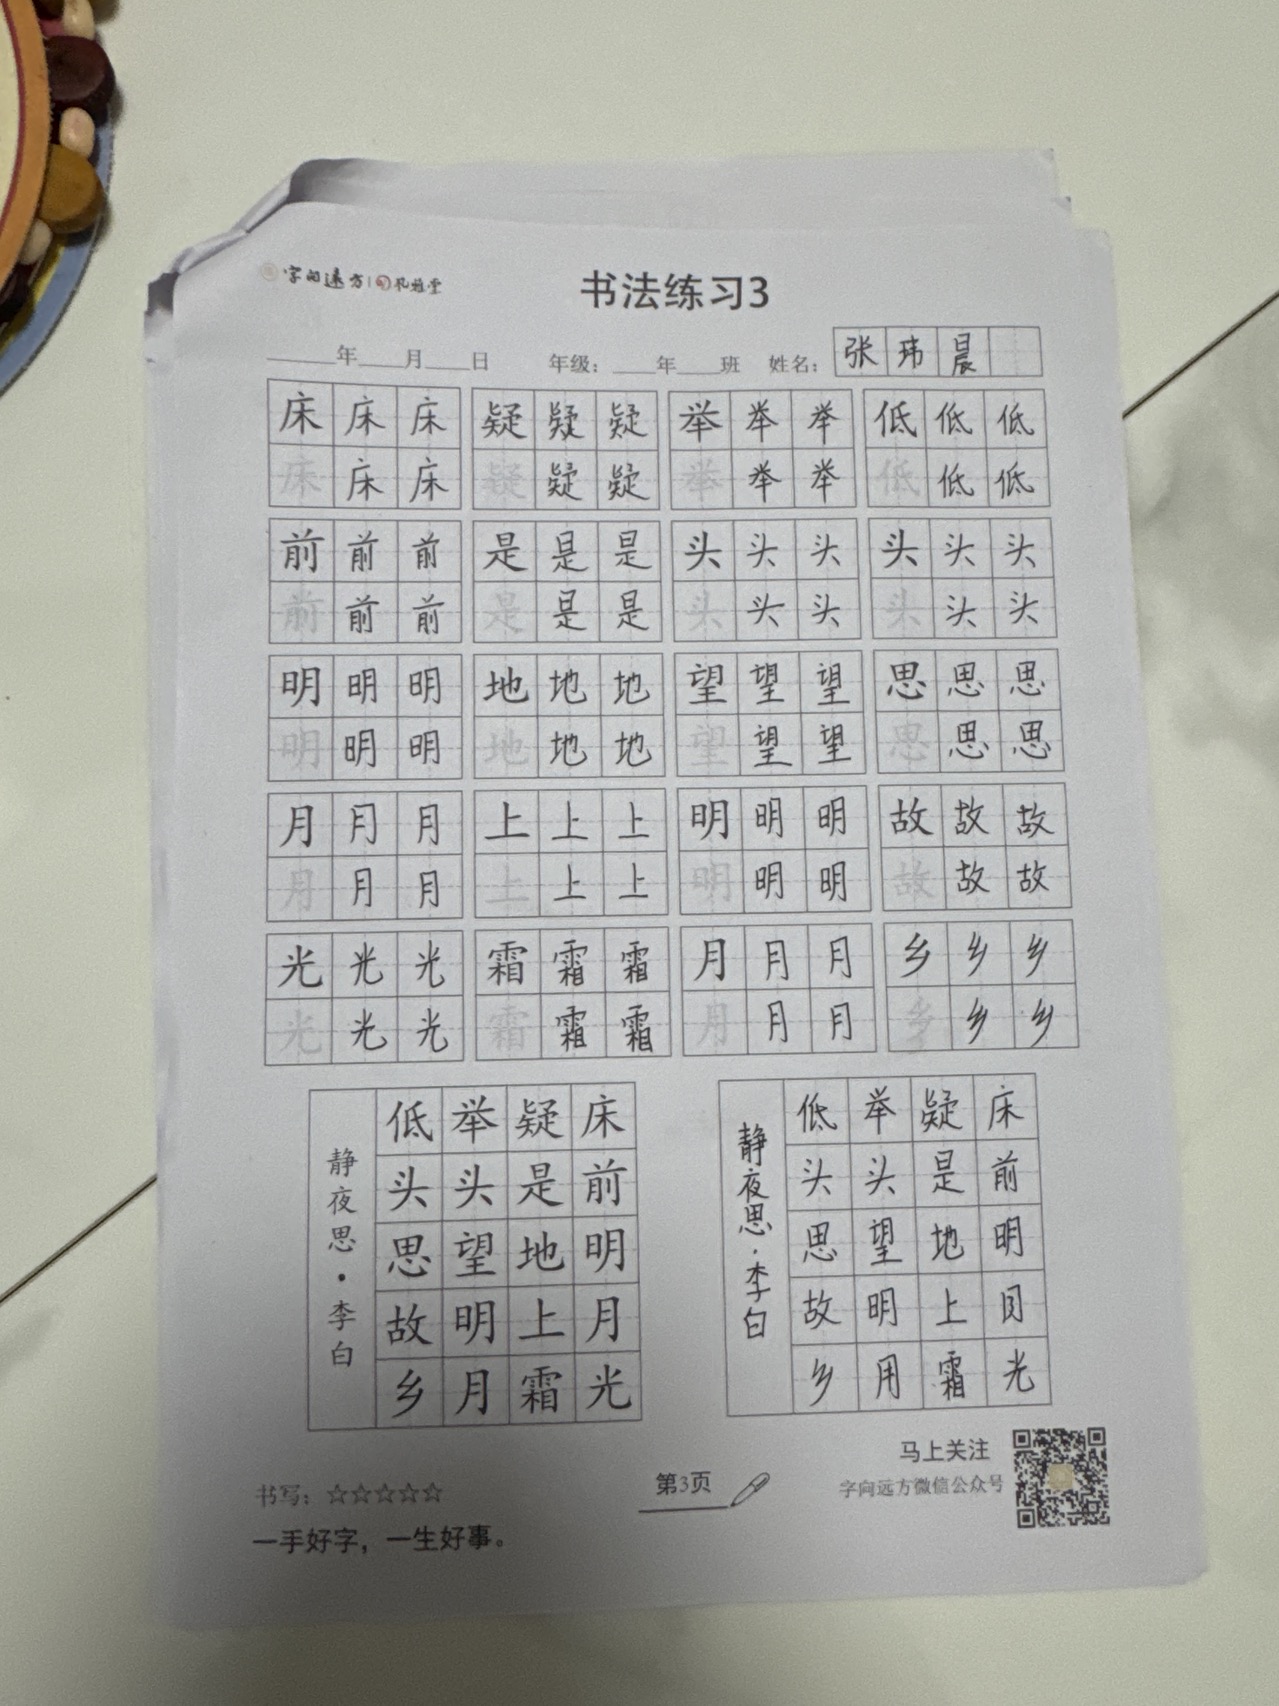 字向远方 | 孔雅堂
书法练习3
年 月 日 年级： 年 班 姓名： 张玮晨
床床床 疑疑疑 举举举 低低低
床床床 疑疑疑 举举举 低低低
前前前 是是是 头头头 头头头
前前前 是是是 头头头 头头头
明明明 地地地 望望望 思思思
明明明 地地地 望望望 思思思
月月月 上上上 明明明 故故故
月月月 上上上 明明明 故故故
光光光 霜霜霜 月月月 乡乡乡
光光光 霜霜霜 月月月 乡乡乡
床前明月光
疑是地上霜
举头望明月
低头思故乡
静夜思·李白
床前明月光
疑是地上霜
举头望明月
低头思故乡
静夜思·李白
书写：☆☆☆☆☆
一手好字，一生好事。
第3页
马上关注
字向远方微信公众号